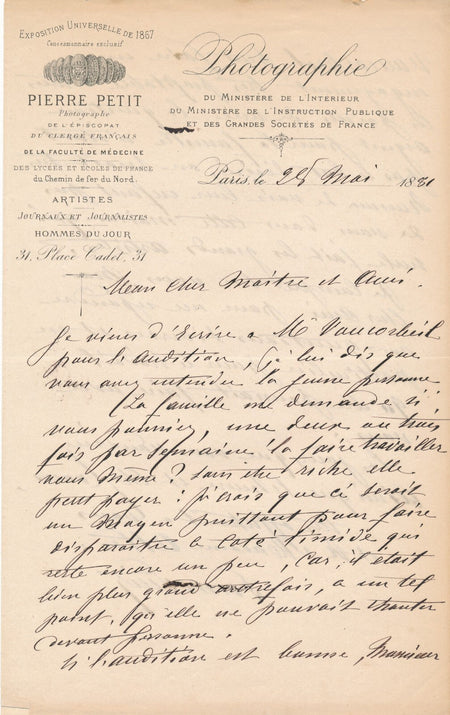 EXPOSITION UNIVERSELLE DE 1867
Concessionnaire exclusif
PIERRE PETIT
Photographe
DE L'ÉPISCOPAT
DU CLERGÉ FRANÇAIS
DE LA FACULTÉ DE MÉDECINE
DES LYCÉES ET ECOLES DE FRANCE
du Chemin de fer du Nord.
ARTISTES
JOURNAUX ET JOURNALISTES
HOMMES DU JOUR
31, Place Cadet, 31
Photographie
DU MINISTÈRE DE L'INTERIEUR
DU MINISTÈRE DE L'INSTRUCTION PUBLIQUE
ET DES GRANDES SOCIÉTÉS DE FRANCE
Paris, le 25 Mai 1881
Mon cher Maître et Ami.
Je viens d'Ecrire a Mr Vaucorbeil
pour l'audition, je lui dis que
vous avez entendu la jeune personne
La famille me demande si
vous pourriez, une deux ou trois
fois par Semaine la faire travailler
vous même? sans être riche elle
peut payer: je crois que ce serait
un moyen puissant pour faire
disparaitre le coté timide qui
reste encore un peu, car, il était
bien plus grand autrefois, a un tel
point, qu'elle ne pouvait chanter
devant personne.
Si l'audition est bonne, Monsieur